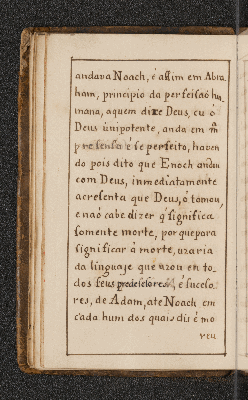 andava Noach, é assim em Abra
ham, principio da perfeisaõ hu
mana, aquem dize Deus, eu ó
Deus ünipotente, anda em m̃
presensa é se perfeito, haven
do pois dito que Enoch andou
com Deus, inmediatamente
acresenta que Deus, ó tomou,
e naõ cabe dizer q̃ significa
somente morte, por que para
significar á morte, uzaria
da linguaje que uzou en to_
dos seus predesesores é suceso
res, de Adam, ate Noach em
cada hum dos quais dis é mo
reu